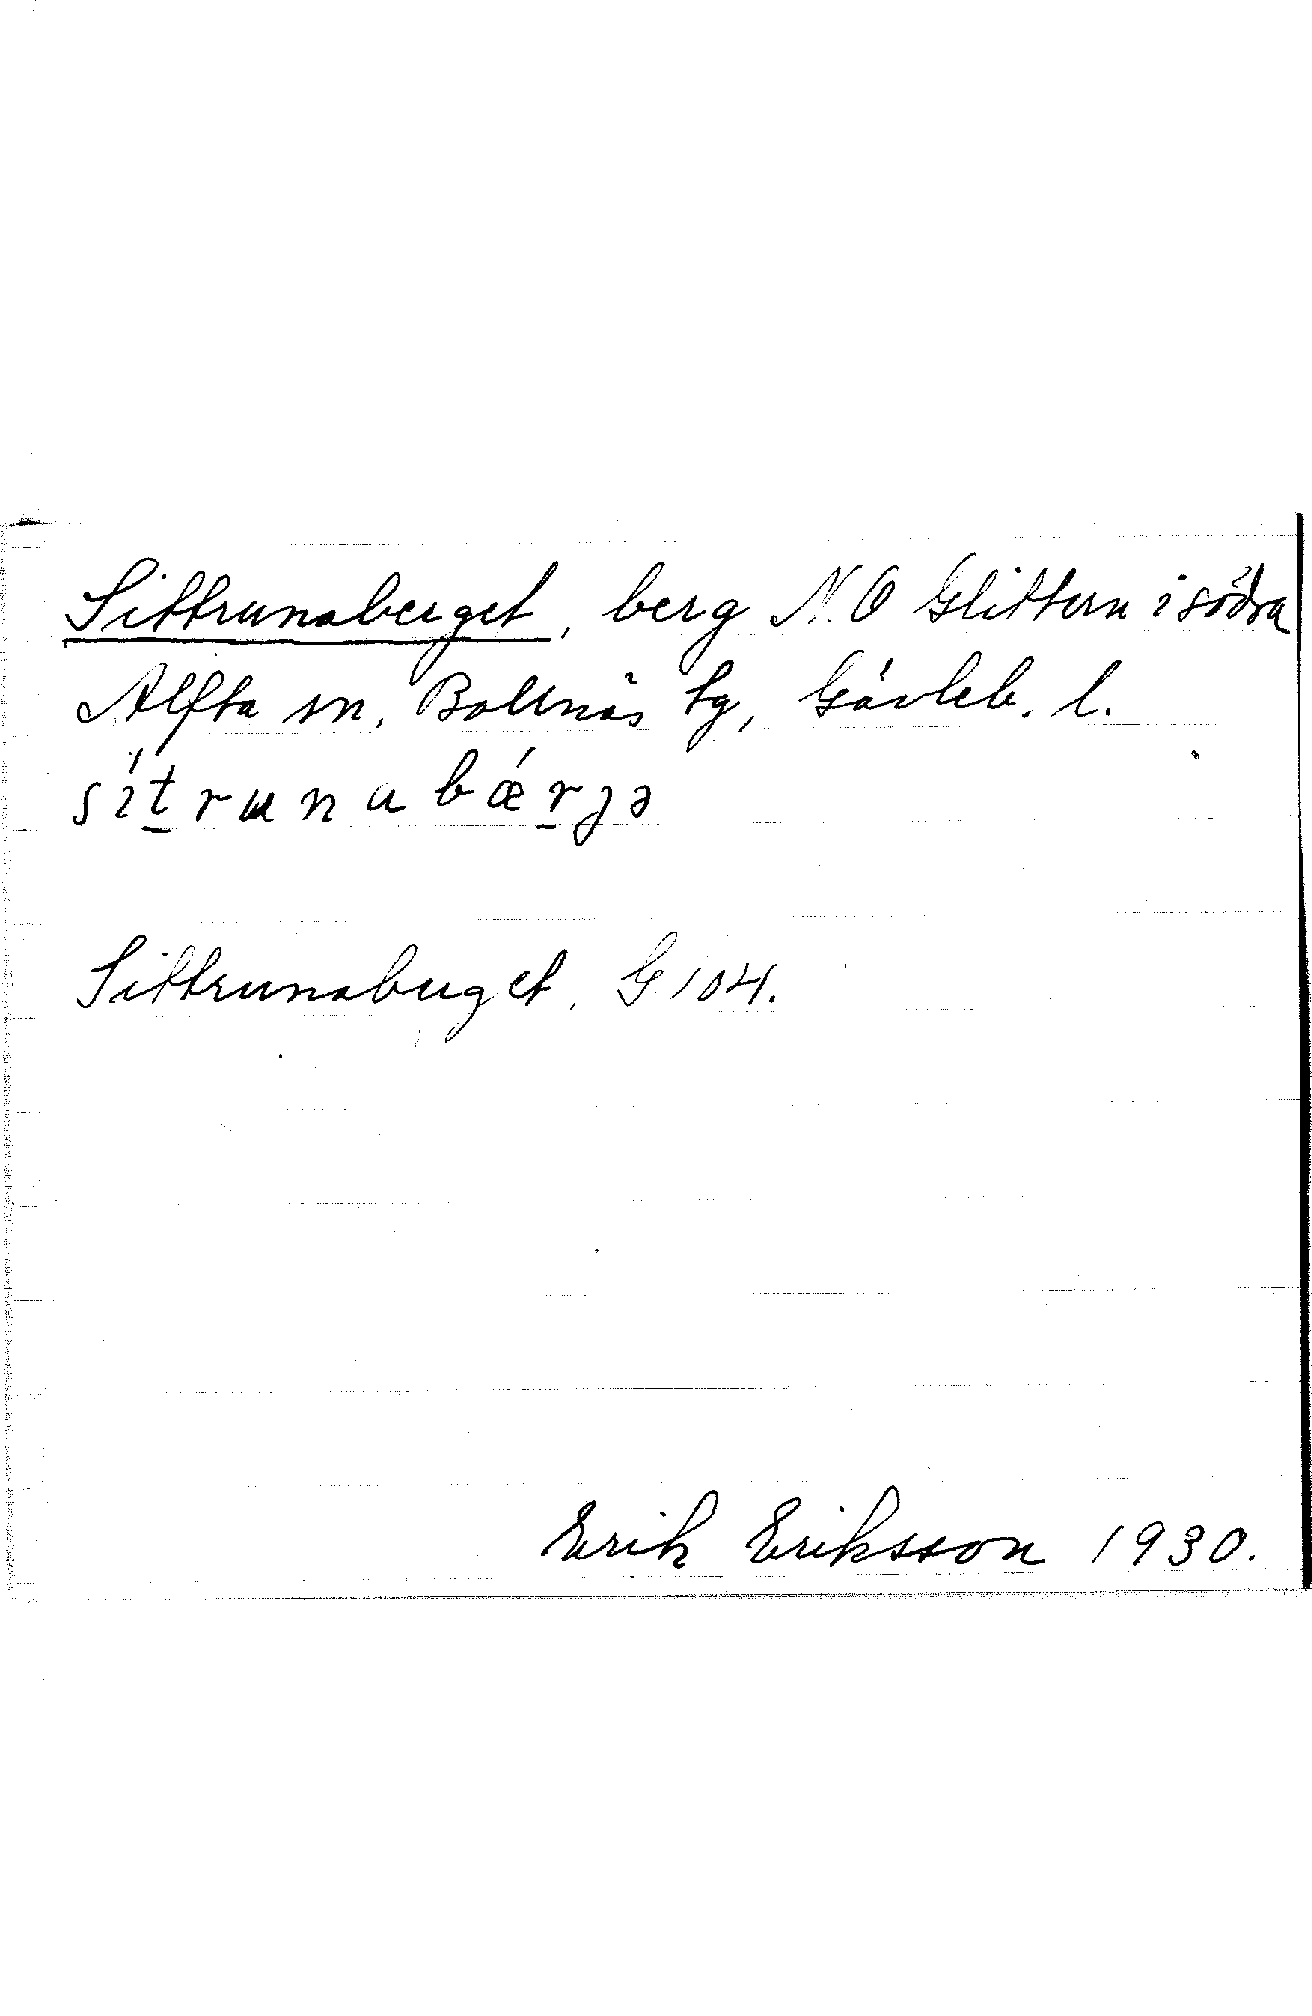 Sittrunaberget, berg N.O Glittern i södra
Alfta sn, Bollnäs tg, Gävleb. l.
sít̲runabǽr̲jə
Sittrunaberget, G 104.
Erik Eriksson 1930.